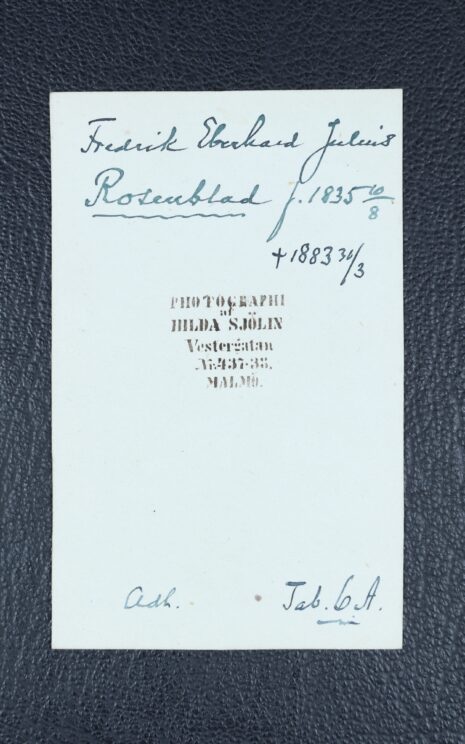 Fredrik Eberhard Julius
Rosenblad f. 1835 10/8
+ 1883 31/3
PHOTOGRAPHI
af
HILDA SJÖLIN
Vestergatan
No. 437-38.
MALMÖ.
Adh. Tab. 6 A.